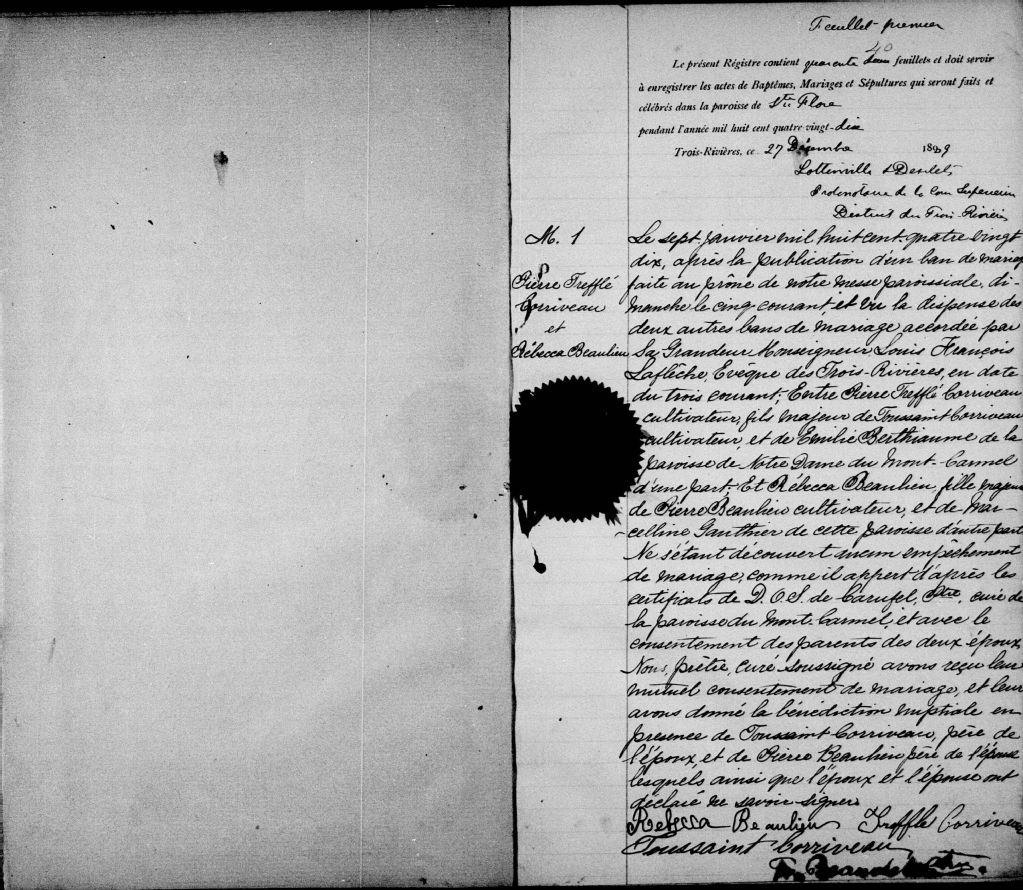 Feuillet premier
40
Le présent Régistre contient quarante feuillets et doit servir
à enregistrer les actes de Baptêmes, Mariages et Sépultures qui seront faits et
célébrés dans la paroisse de Ste Flore
pendant l'année mil huit cent quatre-vingt-dix
Trois-Rivières, ce 27 Décembre 1889
Lottinville & Desilets
Protonotaire de la Cour Superieure
District des Trois-Rivières
M. 1
Pierre Trefflé
Corriveau
et
Rébecca Beaulieu
Le sept janvier mil huit cent quatre vingt
dix, après la publication d'un ban de mariage
faite au prône de notre messe paroissiale, di-
manche le cinq courant, et vu la dispense des
deux autres bans de mariage accordée par
Sa Grandeur Monseigneur Louis François
Laflèche, Evêque des Trois-Rivières, en date
du trois courant; Entre Pierre Trefflé Corriveau
cultivateur, fils majeur de Toussaint Corriveau
cultivateur, et de Emilie Berthiaume de la
paroisse de Notre Dame du Mont-Carmel
d'une part; Et Rébecca Beaulieu, fille majeure
de Pierre Beaulieu cultivateur, et de Mar-
-celline Gauthier de cette paroisse d'autre part
Ne s'étant découvert aucun empêchement
de mariage, comme il appert d'après les
certificats de D. O. S. de Carufel, Ptre, curé de
la paroisse du Mont-Carmel, et avec le
consentement des parents des deux époux
Nous, prêtre, curé soussigné avons reçu leur
mutuel consentement de mariage, et leur
avons donné la bénédiction nuptiale en
presence de Toussaint Corriveau, père de
l'époux, et de Pierre Beaulieu père de l'épouse
lesquels ainsi que l'époux et l'épouse ont
déclaré ne savoir signer
Rebecca Beaulieu Treffle Corriveau
Toussaint Corriveau